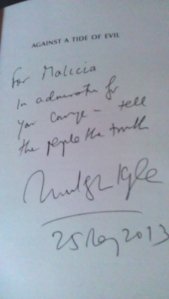 AGAINST A TIDE OF EVIL
For Malicia
In admiration for
your courage – tell
the people the truth
25 May 2013